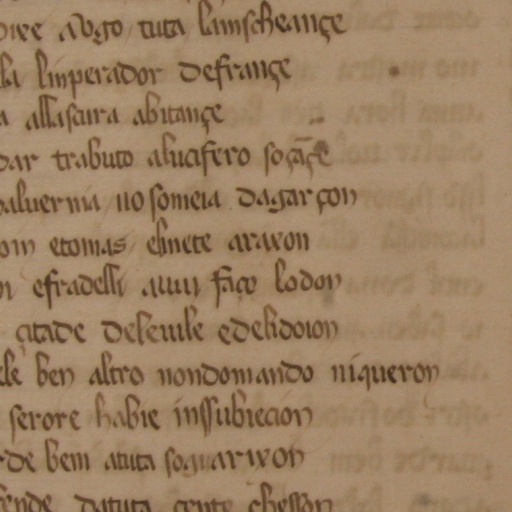 avgo tuta lainscheançe
la linperador defrançe
a allascura abitançe
dar trabuto alucifero soçançe
baluernia no someia dagarçon
om etomas elmete araxon
n efradelli auui façe lodon
çitade deseuile edelidoion
ele ben altro nondomando niqueron
serore habie inssubiecion
rde bem atuta soguarixon
fende datuta çente chesson